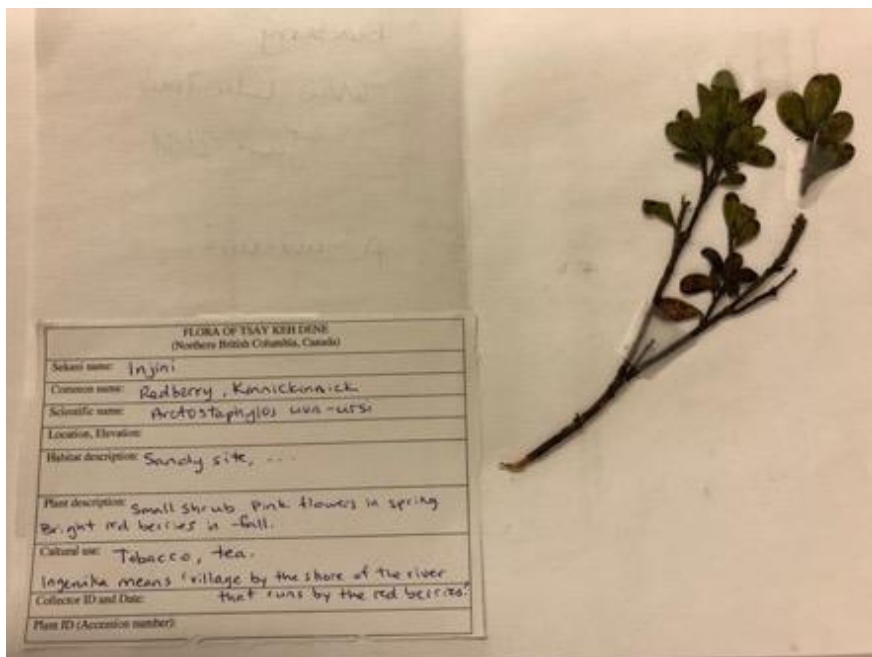 FLORA OF TSAY KEH DENE
(Northern British Columbia, Canada)
Sekani name: Injini
Common name: Redberry, Kinnickinnick
Scientific name: Arctostaphylos uva-ursi
Location, Elevation:
Habitat description: Sandy site, ...
Plant description: Small shrub. Pink flowers in spring
Bright red berries in fall.
Cultural use: Tobacco, tea.
Ingenika means 'village by the shore of the river
Collector ID and Date: that runs by the red berries.'
Plant ID (Accession number):